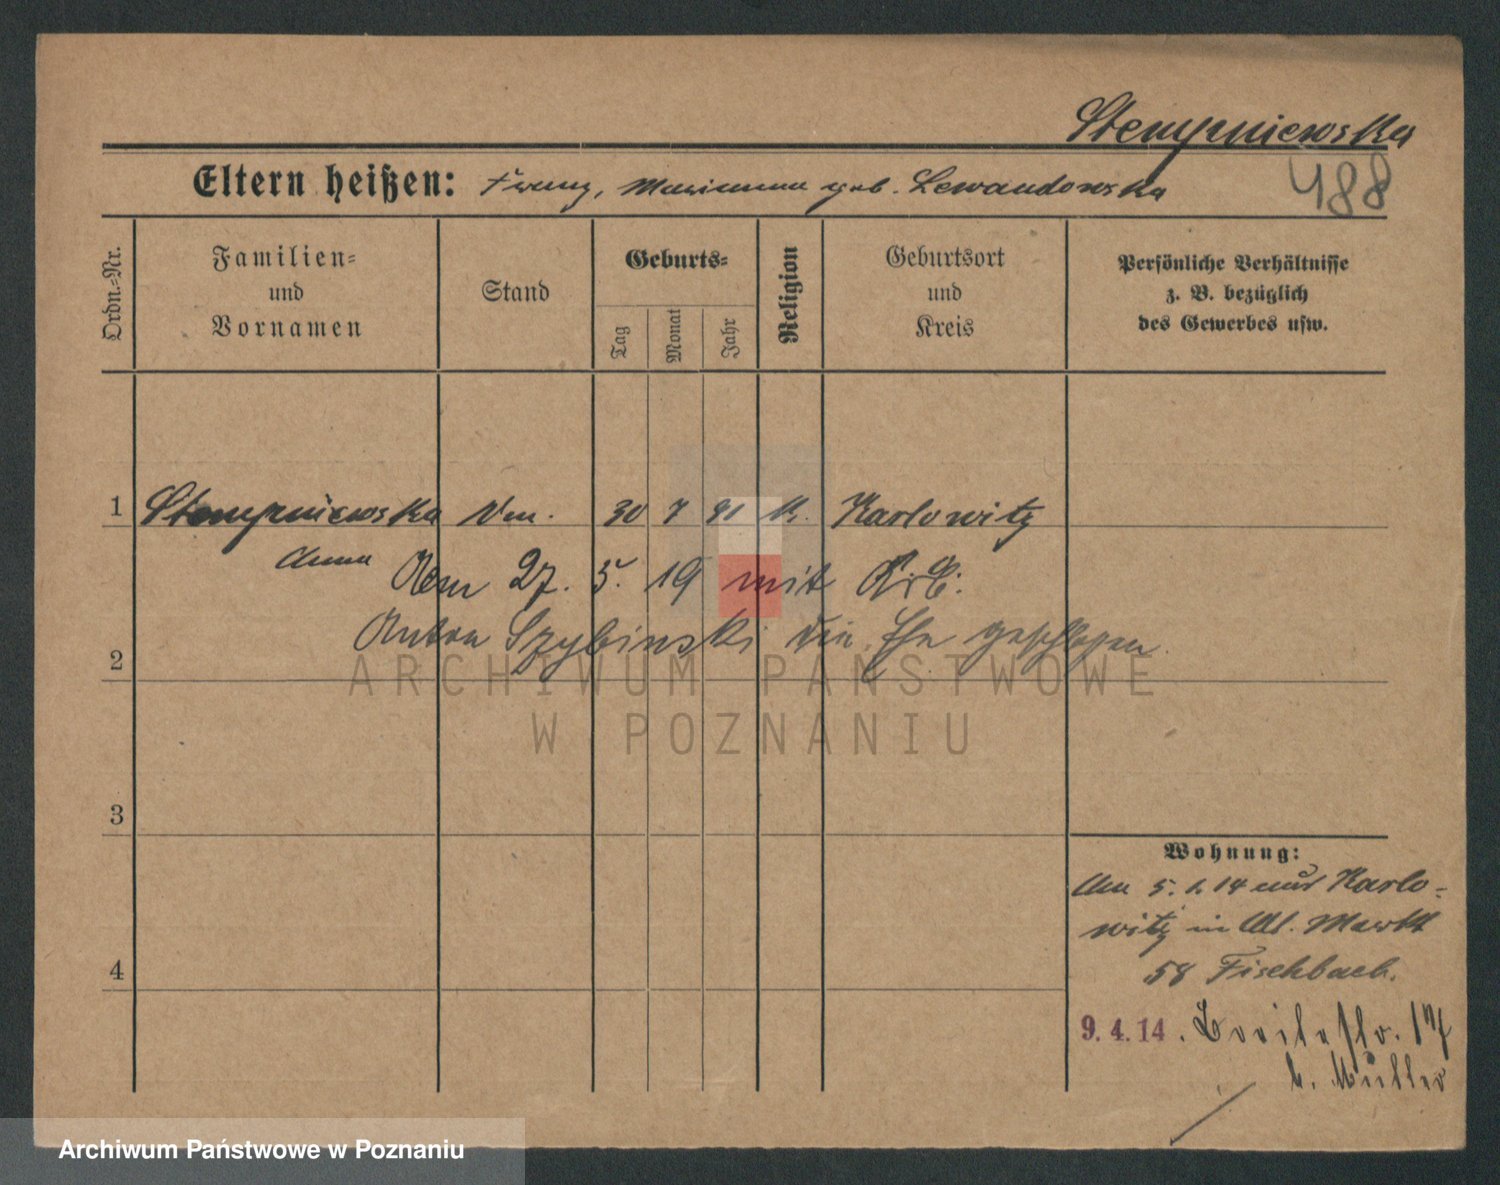 Stempniewska
488
Eltern heißen: Franz, Marianna geb. Lewandowska
Ordn.-Nr.
Familien- und Vornamen
Stand
Geburts-
Tag
Monat
Jahr
Religion
Geburtsort und Kreis
Persönliche Verhältnisse
z. B. bezüglich
des Gewerbes usw.
1 Stempniewska 30 7 91 k. Karlowitz
Anna
27. 5. 19 mit
Anton Szybinski die Ehe geschlossen.
2
ARCHIWUM PAŃSTWOWE
W POZNANIU
3
4
Wohnung:
Am 5. 1. 14 aus Karlo-
witz in Alt. Markt
58 Fischbach.
9.4.14. Breitestr. 17
b. Müller
Archiwum Państwowe w Poznaniu